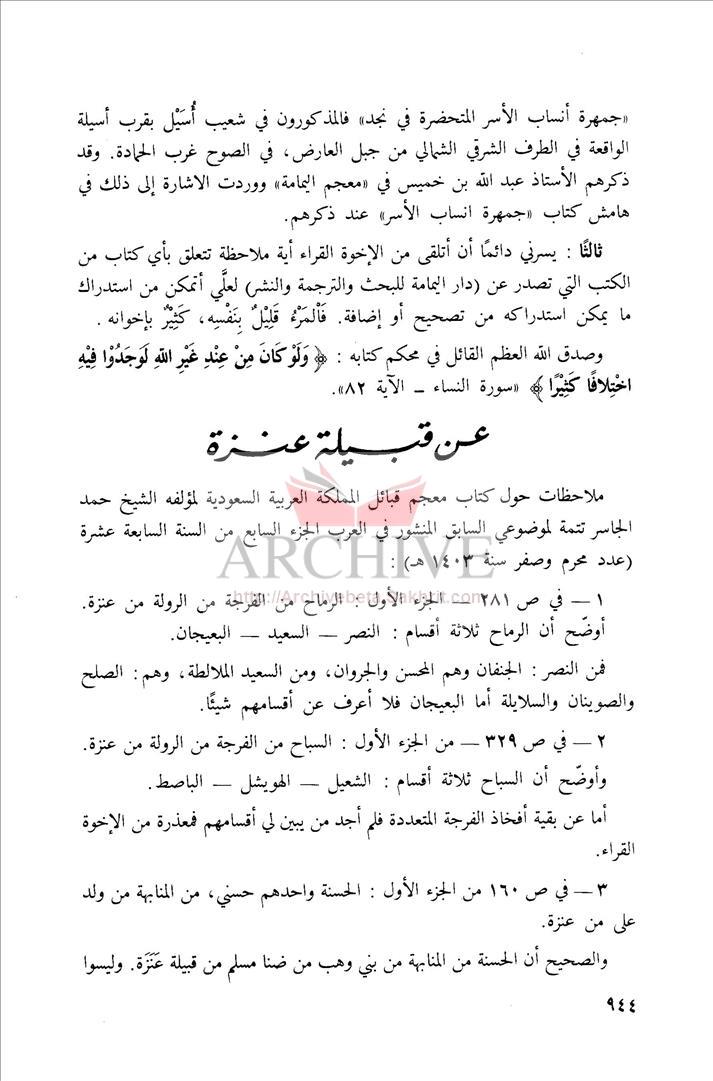 «جمهرة أنساب الأسر المتحضرة في نجد» فالمذكورون في شعيب أُسَيْل بقرب أسيلة
الواقعة في الطرف الشرقي الشمالي من جبل العارض، في الصوح غرب الحمادة. وقد
ذكرهم الأستاذ عبد الله بن خميس في «معجم اليمامة» ووردت الاشارة إلى ذلك في
هامش كتاب «جمهرة انساب الأسر» عند ذكرهم.
ثالثًا : يسرني دائمًا أن أتلقى من الإخوة القراء أية ملاحظة تتعلق بأي كتاب من
الكتب التي تصدر عن (دار اليمامة للبحث والترجمة والنشر) لعلَّي أتمكن من استدراك
ما يمكن استدراكه من تصحيح أو إضافة. فَالمَرْءُ قَلِيْلٌ بِنَفْسِه، كَثِيْرٌ بإخوانه .
وصدق الله العظم القائل في محكم كتابه : ﴿ وَلَوْ كَانَ مِنْ عِنْدِ غَيْرِ اللهِ لَوَجَدُوْا فِيْهِ
اخْتِلافًا كَثِيْرًا ﴾ «سورة النساء ــ الآية ٨٢».
عن قبيلة عنزة
ملاحظات حول كتاب معجم قبائل المملكة العربية السعودية لمؤلفه الشيخ حمد
الجاسر تتمة لموضوعي السابق المنشور في العرب الجزء السابع من السنة السابعة عشرة
ARCHIVE
(عدد محرم وصفر سنة ١٤٠٣ هـ) :
http://Archivebeta.Sakhrit.com
١ ــ في ص ٢٨١ ــ الجزء الأول : الرماح من الفرجة من الرولة من عنزة.
أوضّح أن الرماح ثلاثة أقسام : النصر ــ السعيد ــ البعيجان.
فمن النصر : الجنفان وهم المحسن والجروان، ومن السعيد الملالطة، وهم: الصلح
والصوينان والسلايلة أما البعيجان فلا أعرف عن أقسامهم شيئًا.
٢ ــ في ص ٣٢٩ ــ من الجزء الأول : السباح من الفرجة من الرولة من عنزة.
وأوضّح أن السباح ثلاثة أقسام : الشعيل ــ الهويشل ــ الباصط.
أما عن بقية أفخاذ الفرجة المتعددة فلم أجد من يبين لي أقسامهم فمعذرة من الإخوة
القراء.
٣ ــ في ص ١٦٠ من الجزء الأول : الحسنة واحدهم حسني، من المنابهة من ولد
على من عنزة.
والصحيح أن الحسنة من المنابهة من بني وهب من ضنا مسلم من قبيلة عَنَزَة. وليسوا
٩٤٤